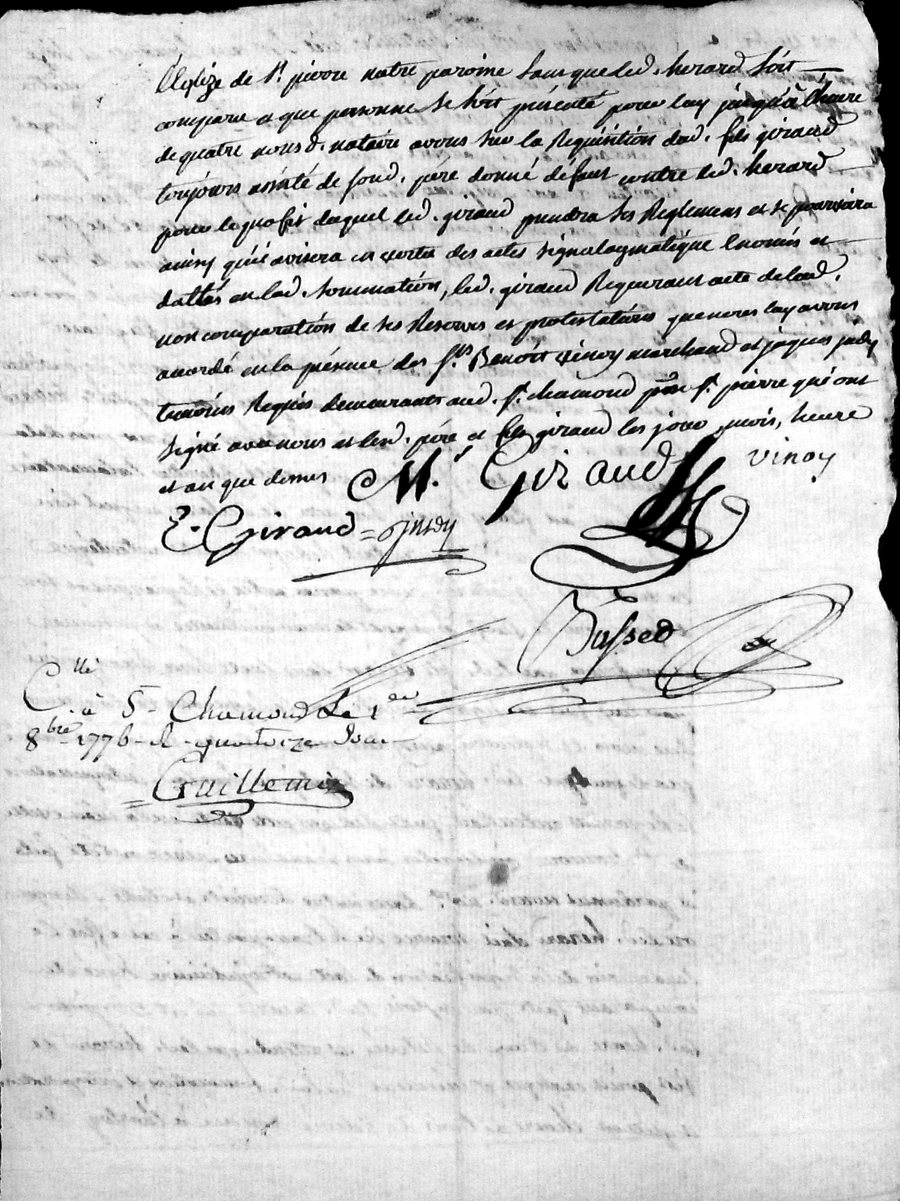 l'Eglize de St. pierre notre paroisse sans que led. herard soit
comparu et que personne se soit présenté pour luy jusqu'à l'heure
de quatre nousd. notaire avons sur la Requisition dud. fils giraud
toujours assisté de sond. père donné défaut contre led. herard
pour le profit duquel led. giraud prendra ses Reglemens et se pourvoira
ainsy qu'il avisera en vertu des actes signalagmatique Enoncés et
dattés en lad. sommation, led. giraud Requerant acte de lad.
non comparution de ses Reserves et protestations que nous luy avons
accordé en la présence des srs. Benoit vinoy marchand et jaques
temoins Requis demeurants aud. St. chamond psse St. pierre qui ont
signé avec nous et lesd. père et fils giraud les jour, mois, heure
et an que dessus M. Giraud vinoy
E. Giraud
Bassed
Clle
à St. Chamond Le 1er
8bre 1776 R. quatorze sous
Guillemin